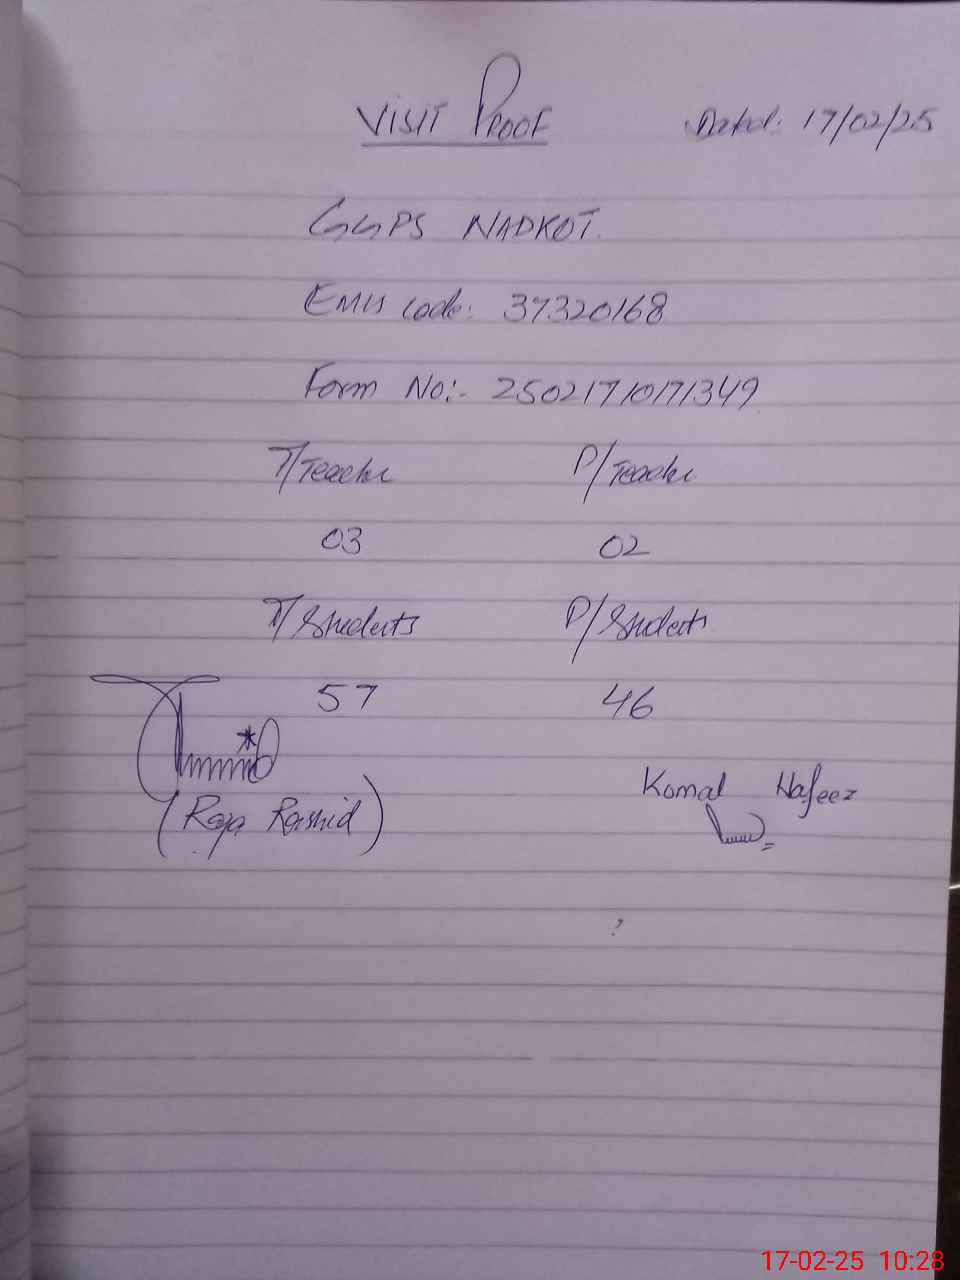 VISIT PROOF Dated: 17/02/25
GGPS NADKOT.
EMIS Code: 37320168
Form No:- 25021710171349
T/Teacher P/Teacher
03 02
T/Students P/Students
57 46
(Raja Rashid) Komal Hafeez
17-02-25 10:28